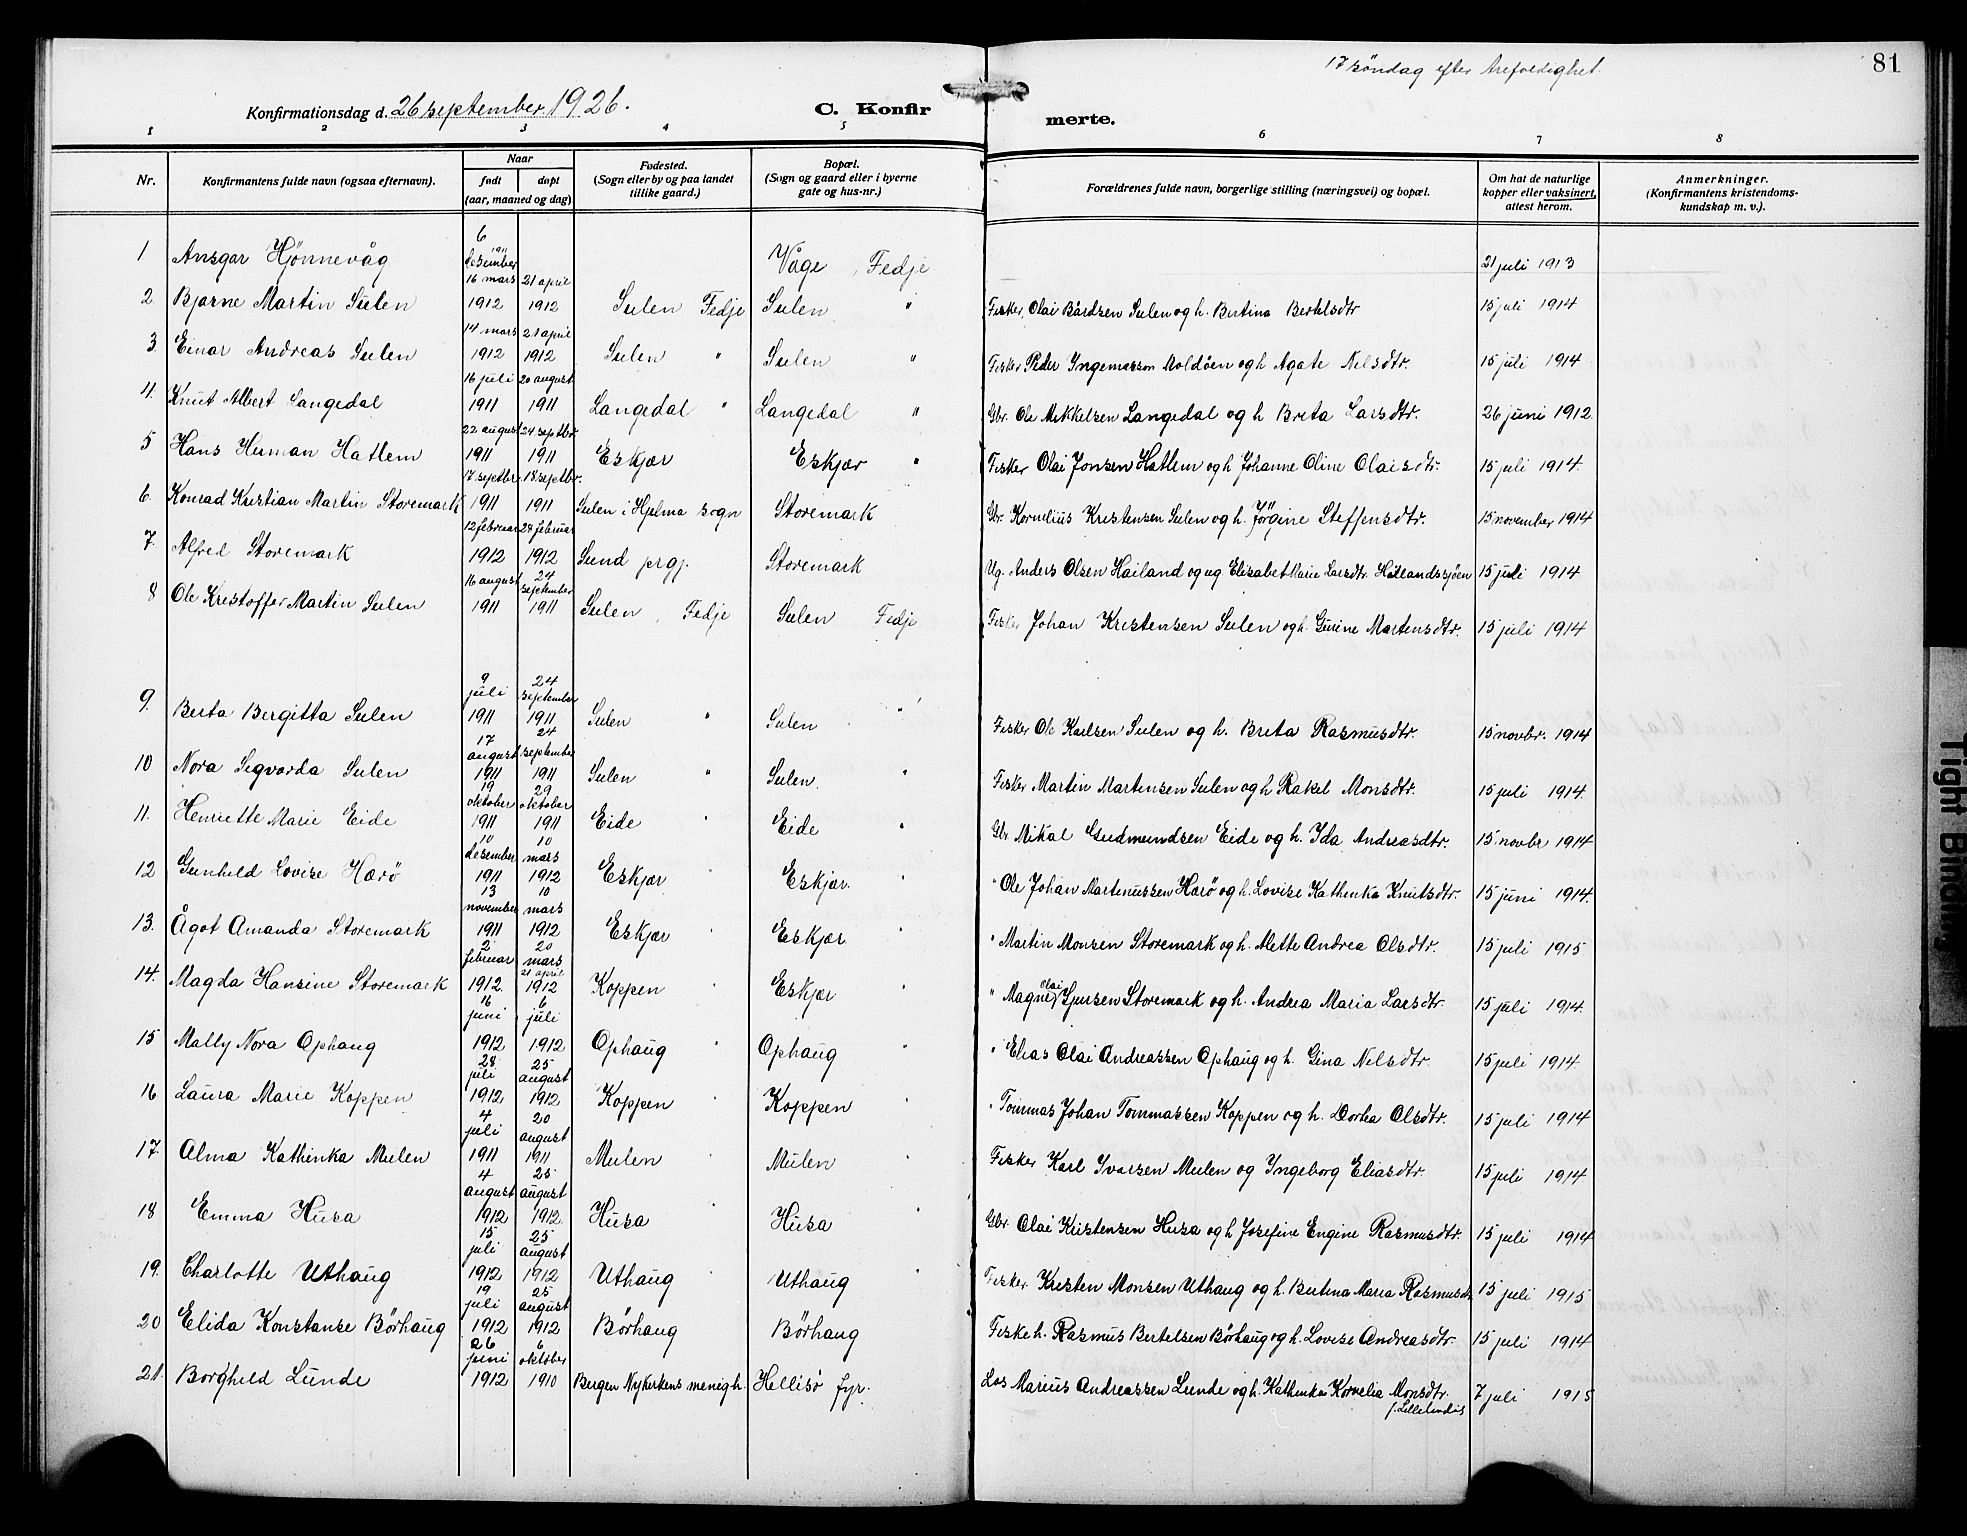 17 søndag efter trefoldighet. 81
Konfirmationsdag d. 26 september 1926. C. Konfirmerte.
1 2 3 4 5 6 7 8
Nr. Konfirmantens fulde navn (ogsaa efternavn). Naar født døpt (aar, maaned og dag) Fødested. (Sogn eller by og paa landet tillike gaard.) Bopæl. (Sogn og gaard eller i byerne gate og hus-nr.) Forældrenes fulde navn, borgerlige stilling (næringsvei) og bopæl. Om hat de naturlige kopper eller vaksinert, attest herom. Anmerkninger. (Konfirmantens kristendoms-kundskap m. v.).
1 Ansgar Hjønnevåg 6 desember 1911 Våge, Fedje 21 juli 1913
2 Bjarne Martin Sulen 16 mars 1912 21 april 1912 Sulen Fedje Sulen " Fisker Olai Bårdsen Sulen og h. Bertina Bertelsdtr 15 juli 1914
3. Einar Andreas Sulen 14 mars 1912 21 april 1912 Sulen " Sulen " Fisker Peder Ingemasson Moldøen og h Agate Nilsdtr. 15 juli 1914
4. Knut Albert Langedal 16 juli 1911 20 august 1911 Langedal " Langedal " Gbr. Ole Mikkelsen Langedal og h Brita Larsdtr. 26 juni 1912
5 Hans Herman Hatlem 22 august 1911 24 septbr. 1911 Eskjær Eskjær " Fisker Olai Jonsen Hatlem og h Johanne Oline Olaisdtr. 15 juli 1914.
6. Konrad Kristian Martin Storemark 17 septbr. 1911 18 septbr. 1911 Sulen i Hjelma sogn Storemark Gbr. Kornelius Kristensen Sulen og h. Jørgine Steffensdtr. 15 november 1914
7. Alfred Storemark 12 februar 1912 24 februar 1912 Sund prgj. Storemark Ug. Anders Olsen Hailand og ug Elisabet Marie Larsdtr. Høilandssjøen 15 juli 1914
8 Ole Kristoffer Martin Sulen 16 august 1911 24 september 1911 Sulen, Fedje Sulen Fedje Fisker Johan Kristensen Sulen og h. Gurine Martensdtr. 15 juli 1914
9. Berta Bergitta Sulen 9 juli 1911 24 september 1911 Sulen " Sulen " Fisker Ole Karlsen Sulen og h. Brita Rasmusdtr. 15 novbr. 1914
10 Nora Sigvarda Sulen 17 august 1911 24 september 1911 Sulen " Sulen. " Fisker Martin Martinsen Sulen og h Rakel Monsdtr. 15 juli 1914.
11. Henriette Marie Eide 19 oktober 1911 29 oktober 1911 Eide " Eide " Gbr Mikal Gudmundsen Eide og h. Ida Andreasdtr. 15 novbr 1914
12 Gunhild Lovise Harø 10 desember 1911 10 mars 1912 Eskjær " Eskjær. " " Ole Johan Martinussen Harø og h. Lovise Kathinka Knutsdtr. 15 juni 1914.
13. Ågot Amanda Storemark 13 november 1911 10 mars 1912 Eskjær " Eskjær " " Martin Monsen Storemark og h. Mette Andrea Olsdtr. 15 juli 1915
14. Magda Hansine Storemark 2 februar 1912. 20 mars 21 april 1912 Koppen " Eskjær " " Magne Olai Jensen Storemark og h. Andrea Maria Larsdtr. 15 juli 1914.
15 Mally Nora Ophaug 16 juni 1912 6 juli 1912 Ophaug " Ophaug " " Elias Olai Andreassen Ophaug og h. Gina Nilsdtr. 15 juli 1914.
16 Laura Marie Koppen 28 juli 1912 25 august 1912 Koppen " Koppen " " Tommas Johan Tommassen Koppen og h. Dorthea Olsdtr. 15 juli 1914
17. Alma Kathinka Mulen 4 juli 1911 20 august 1911 Mulen " Mulen Fisker Karl Ivarsen Mulen og Ingeborg Eliasdtr. 15 juli 1914
18 Emma Husa 4 august 1912 25 august 1912. Husa " Husa " Gbr Olai Kristensen Husa og h Josefine Engine Rasmusdtr. 15 juli 1914
19. Charlotte Uthaug 15 juli 1912 25 august 1912 Uthaug " Uthaug " Fisker Kristen Monsen Uthaug og h. Bertina Maria Rasmusdtr 15 juli 1915
20 Elida Konstanse Børhaug 19 juli 1912 25 august 1912 Børhaug Børhaug Fisker h. Rasmus Bertelsen Børhaug og h. Lovise Andreasdtr. 15 juli 1914
21. Borghild Lunde 26 juni 1912 6 oktober 1910 Bergen Nykirkens menigh. Hellisø fyr. Los Marius Andreassen Lunde og h. Kathinka Kornelia Monsdtr. 7 juli 1915
Tight Binding